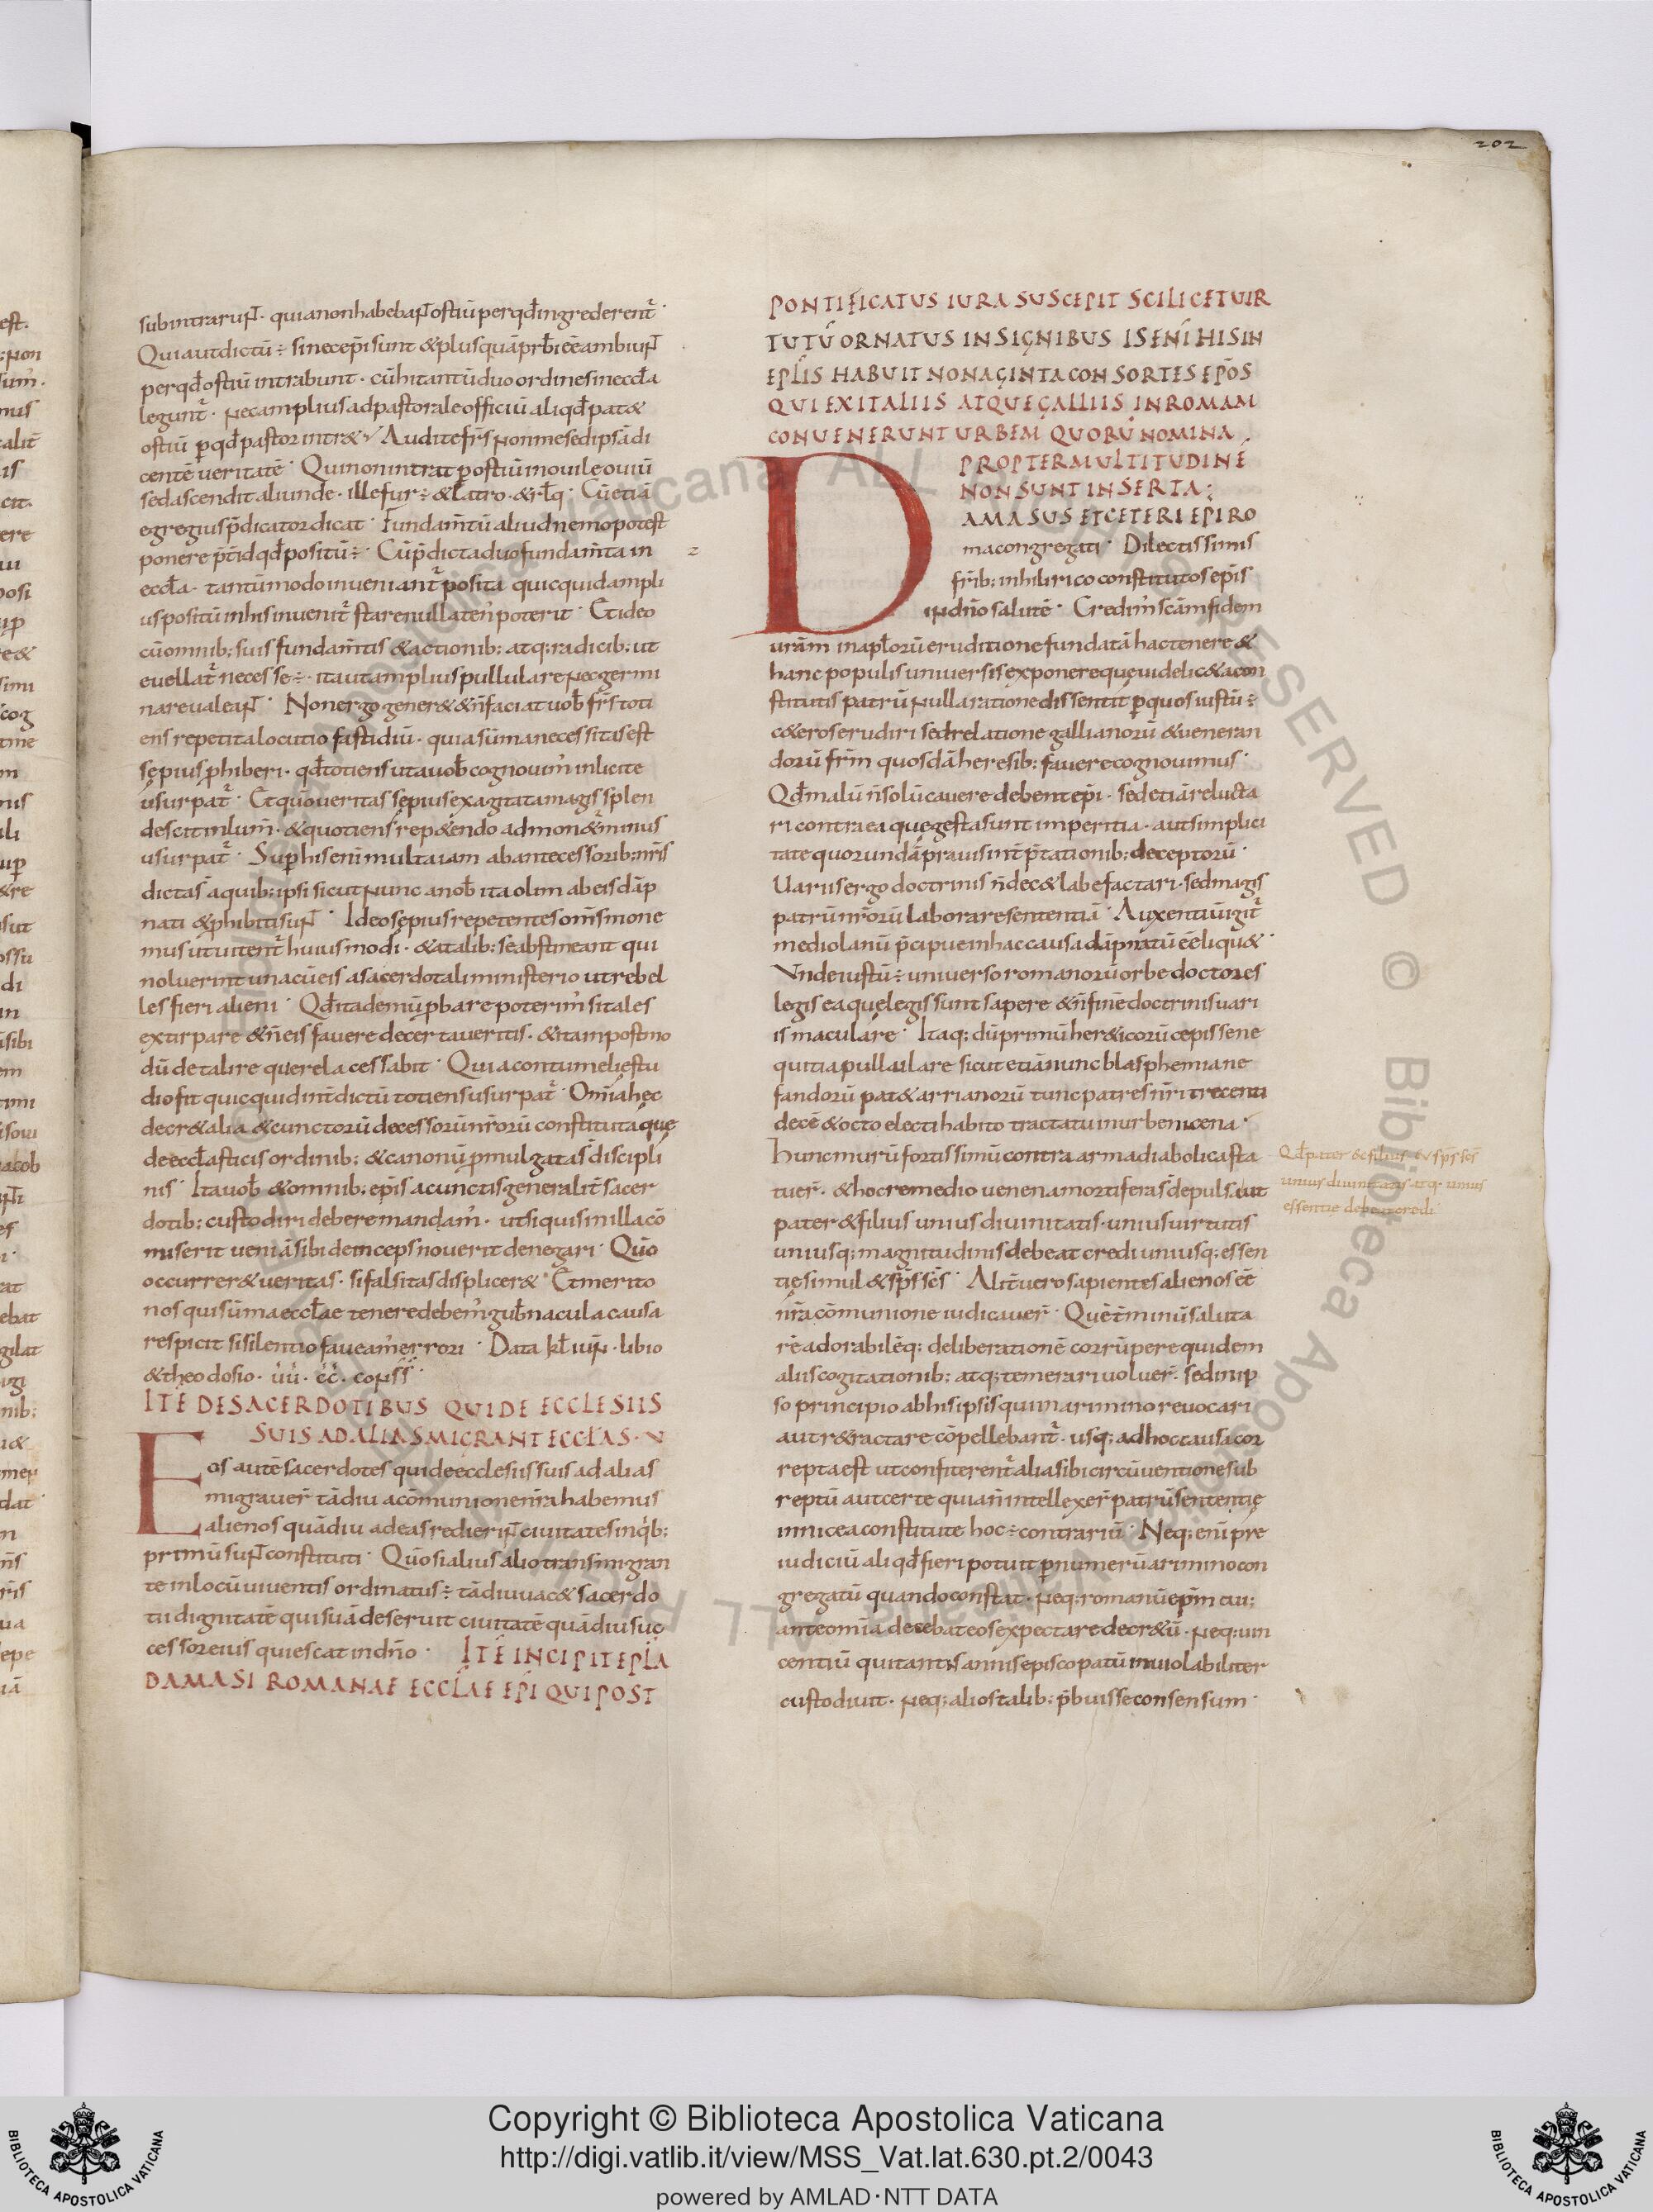 202
subintraruɴ̄. quia non habebaɴ̄ ostiū per qđ ingrederent̄.
Qui aut dictū ÷ si nec ep̄i sunt & plus quā prb̄i eē ambiuɴ̄
per qđ ostiū intrabunt. cū hi tantū duo ordines in eccl̄a
legunt̄. nec amplius ad pastorale officiū aliqđ pat&
ostiū ꝑ qđ pastor intr&. Audite frs̄ non me sed ipsā di
centē veritatē. Qui non intrat ꝑ ostiū in ovile oviū
sed ascendit aliunde. ille fur ÷ & latro. & rlq̄. Cū etiā
egregius p̄dicator dicat. Fundam̄tū aliud nemo potest
ponere p̄t id qđ positū ÷. Cū p̄dicta duo fundam̄ta in
eccl̄a. tantūmodo inveniant̄ posita quicquid ampli
us positū in his invenit̄ stare nullaten' poterit. Et ideo
cū omnib; suis fundam̄tis & actionib; atq; radicib; ut
evellat̄ necesse ÷. ita ut amplius pullulare nec germi
nare valeaɴ̄. Non ergo gener& & n̄ faciat vob̄ frs̄ toti
ens repetita locutio fastidiū. quia sūma necessitas est
sępius ꝓhiberi. qđ totiens ut a vob̄ cognovim' inlicite
usurpat̄. Et quo veritas sępius exagitata magis splen
descit in lum̄. & quotiens rep&endo admon&̄ minus
usurpat̄. Suꝑ his enī multa iam ab antecessorib; nr̄is
dicta s̄ a quib; ipsi sicut nunc a nob̄ ita olim ab eis dāp
nati & ꝓhibiti suɴ̄. Ideo sępius repetentes om̄s mone
mus ut vitent̄ huiusmodi. & a talib; se abstineant qui
noluerint una cū eis a sacerdotali ministerio ut rebel
les fieri alieni. Qđ ita demū ꝓbare poterim' si tales
extirpare & n̄ eis favere decertaveritis. & iam postmo
dū de tali re querela cessabit. Quia contumelię stu
dio fit quicquid int̄dictū totiens usurpat̄. Om̄ia hęc
decr&alia & cunctorū decessorū nr̄orū constituta quę
de eccl̄asticis ordinib; & canonū ꝓmulgata s̄ discipli
nis. Ita vob̄ & omnib; ep̄is ac cunctis generalit̄ sacer
dotib; custodiri debere mandam'. ut si quis in illa cō
miserit veniā sibi deinceps noverit denegari. Quo
occurrer& veritas. si falsitas displicer&. Et merito
nos qui sūma eccl̄ae tenere debem' gub̄nacula causa
respicit si silentio faveam' errori. Data kl̄ iuɴ̄. libio
& theodosio. ūū. c̄c̄. coɴss̄.
ITĒ DE SACERDOTIBUS QUI DE ECCLESIIS
SUIS AD ALIAS MIGRANT ECCLAS. V
Eos autē sacerdotes qui de ecclesiis suis ad alias
migraver̄ tādiu a cōmunione nr̄a habemus
alienos quādiu ad eas redieriɴ̄ civitates in qb;
primū suɴ̄ constituti. Quo si alius alio transmigran
te in locū viventis ordinatus ÷ tādiu vac& sacerdo
tii dignitatē qui suā deseruit civitatē quādiu suc
cessor eius quiescat in dn̄o. ITĒ INCIPIT EPLA
DAMASI ROMANAE ECCLAE EPI QUI POST
PONTIFICATUS IURA SUSCEPIT SCILICET VIR
TUTŪ ORNATUS INSIGNIBUS IS ENĪ HIS IN
EPLIS HABUIT NONAGINTA CONSORTES EPŌS
QUI EX ITALIIS ATQUE GALLIIS IN ROMAM
CONVENERUNT URBEM QUORŪ NOMINA
PROPTER MULTITUDINĒ
NON SUNT INSERTA;
DAMASUS ET CETERI EPI RO
ma congregati. Dilectissimis
frīb; in hilirico constitutos ep̄is
in dn̄o salutē. Credim' scām fidem
vrām in apl̄orū eruditione fundatā hac tenere &
hanc populis universis exponere que videlic& a con
stitutis patrū nulla ratione dissentit ꝑ quos iustū ÷
c&eros erudiri sed relatione gallianorū & veneran
dorū frīm quosdā heresib; favere cognovimus.
Qđ malū n̄ solū cavere debent ep̄i. sed etiā relucta
ri contra ea que gesta sunt imperitia. aut simplici
tate quorundā pravis int̄p̄tationib; deceptorū.
Variis ergo doctrinis n̄ dec& labefactari. sed magis
patrū nr̄orū laborare sententiā. Auxentiū igit̄
mediolanū p̄cipue in hac causa dāpnatū eē liqu&.
Unde iustū ÷ universo romanorū orbe doctores
legis ea que legis sunt sapere & n̄ finē doctrinis vari
is maculare. Itaq; dū primū her&icorū cepisse ne
quitia pullulare sicut etiā nunc blasphemia ne
fandorū pat& arrianorū tunc patres nr̄i trecenti
decē & octo electi habito tractatu in urbe nicena.
hunc murū fortissimū contra arma diabolica sta
tuer̄. & hoc remedio venena mortifera s̄ depulsa ut
pater & filius unius divinitatis. unius virtutis
uniusq; magnitudinis debeat credi uniusq; essen
tię simul & sp̄s sc̄s. Alit̄ vero sapientes alienos eē
nr̄a cōmunione iudicaver̄. Quē t̄minū saluta
rē adorabilēq; deliberationē corrūpere quidem
aliis cogitationib; atq; temerari voluer̄. sed in ip
so principio ab his ipsis qui in arimino revocari
aut r&ractare cōpellebant̄. usq; ad hoc causa cor
repta est ut confiterent̄ alia sibi circūventione sub
reptū aut certe quia n̄ intellexer̄ patrū sententię
in nicea constitute hoc ÷ contrariū. Neq; enī pre
iudiciū aliqđ fieri potuit ꝑ numerū arimino con
gregatū quando constat. neq; romanū ep̄m cui;
ante om̄ia decebat eos expectare decr&ū. neq; vin
centiū qui tantis annis episcopatū inviolabiliter
custodivit. neq; alios talib; p̄buisse consensum.
Qđ pater & filius & sp̄s sc̄s
unius divinitatis atq; unius
essentię debeat credi
Copyright © Biblioteca Apostolica Vaticana
http://digi.vatlib.it/view/MSS_Vat.lat.630.pt.2/0043
powered by AMLAD·NTT DATA
BIBLIOTECA APOSTOLICA VATICANA
BIBLIOTECA APOSTOLICA VATICANA